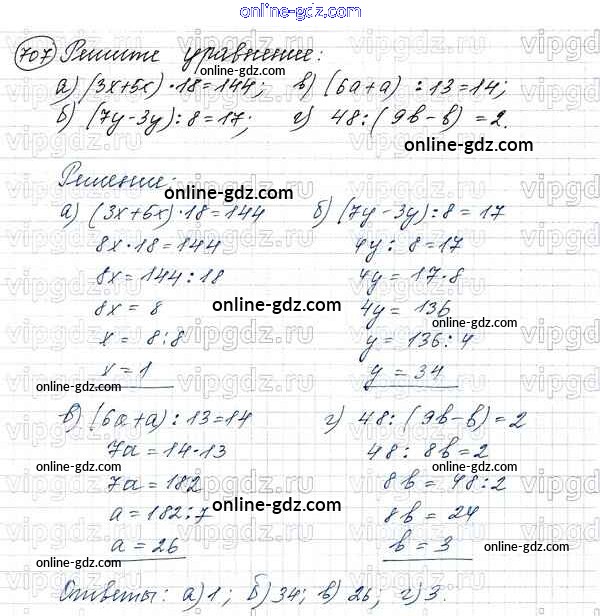 online-gdz.com
707 Решите уравнение:
а) (3x+5x)·18=144; в) (6a+a):13=14;
б) (7y-3y):8=17; г) 48:(9b-b)=2.
online-gdz.com
Решение:
online-gdz.com
а) (3x+5x)·18=144 б) (7y-3y):8=17
8x·18=144 4y:8=17
8x=144:18 4y=17·8
8x=8 4y=136
online-gdz.com
x=8:8 y=136:4
x=1 y=34
online-gdz.com
online-gdz.com
в) (6a+a):13=14 г) 48:(9b-b)=2
7a=14·13 48:8b=2
online-gdz.com
7a=182 8b=48:2
online-gdz.com
a=182:7 8b=24
a=26 b=3
online-gdz.com
Ответы: а) 1; б) 34; в) 26; г) 3.
vipgdz.ru